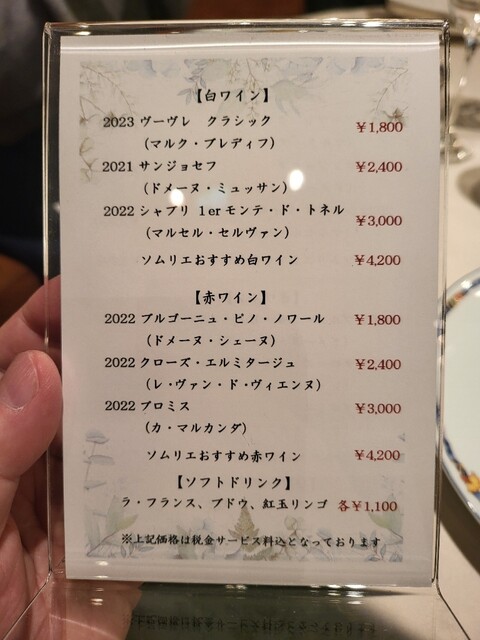 【白ワイン】
2023 ヴーヴレ クラシック ¥1,800
(マルク・ブレディフ)
2021 サンジョセフ ¥2,400
(ドメーヌ・ミュッサン)
2022 シャブリ 1erモンテ・ド・トネル ¥3,000
(マルセル・セルヴァン)
ソムリエおすすめ白ワイン ¥4,200
【赤ワイン】
2022 ブルゴーニュ・ピノ・ノワール ¥1,800
(ドメーヌ・シェーヌ)
2022 クローズ・エルミタージュ ¥2,400
(レ・ヴァン・ド・ヴィエンヌ)
2022 プロミス ¥3,000
(カ・マルカンダ)
ソムリエおすすめ赤ワイン ¥4,200
【ソフトドリンク】
ラ・フランス、ブドウ、紅玉リンゴ 各¥1,100
※上記価格は税金サービス料込となっております